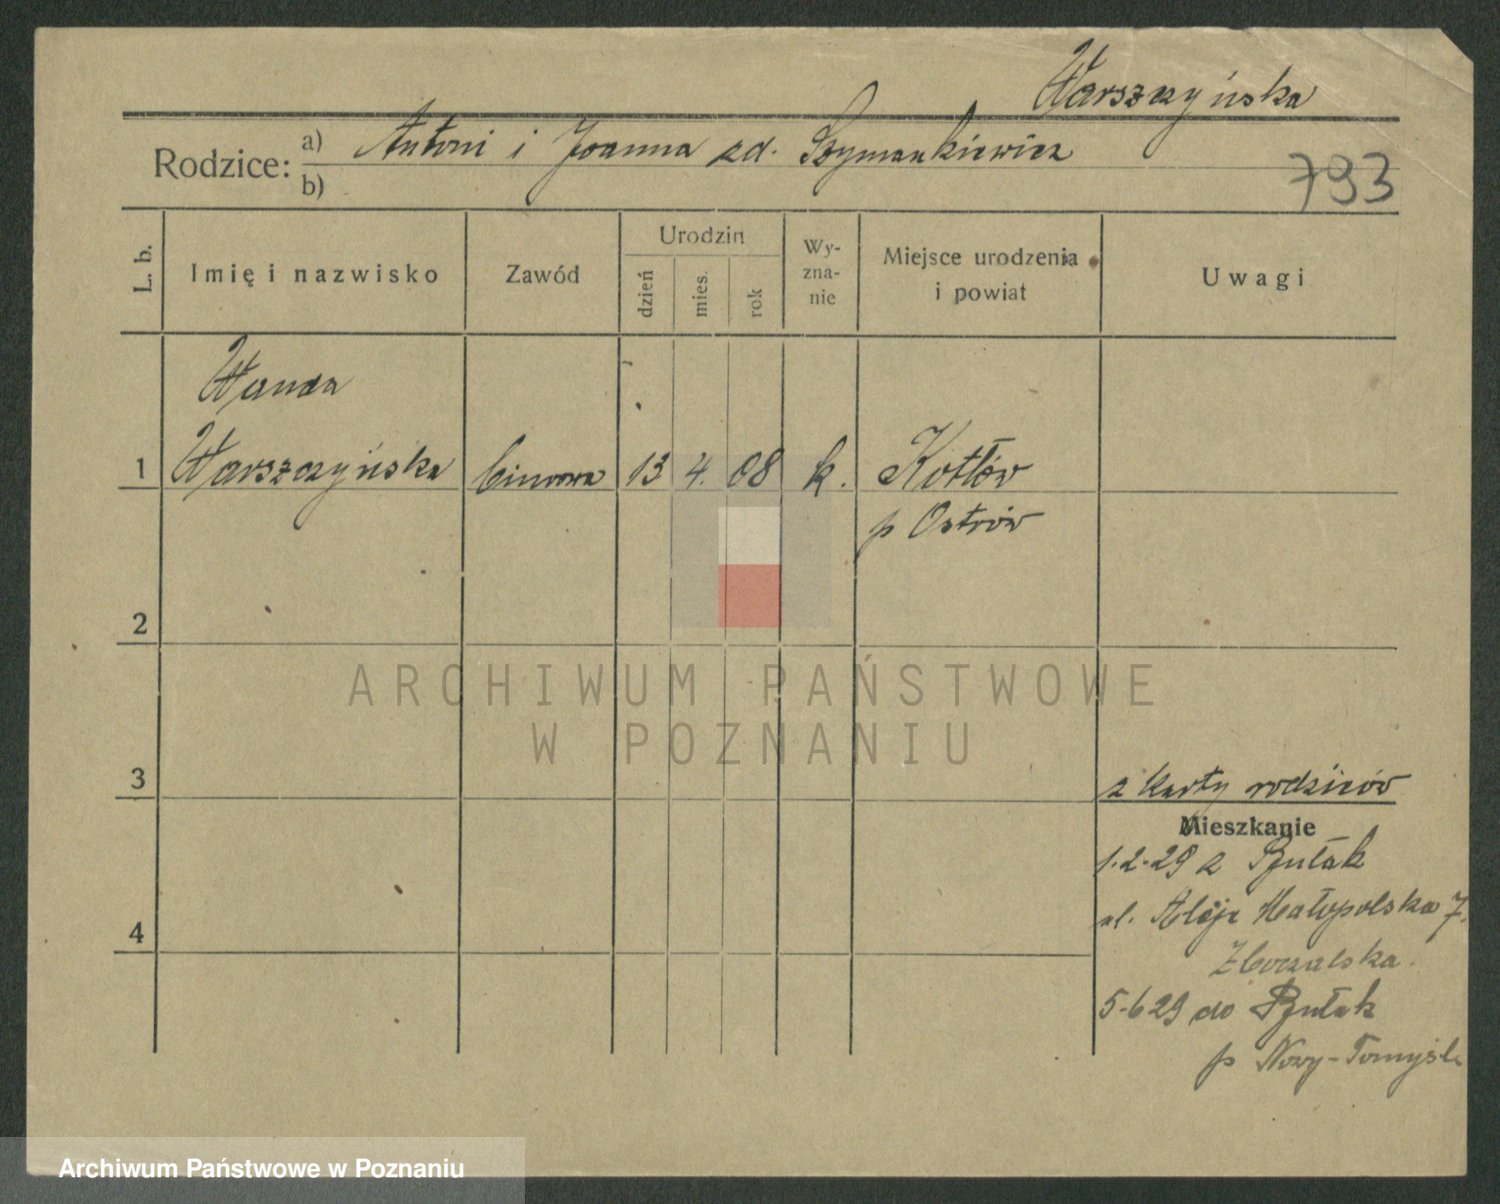 Warszczyńska
Rodzice: a) Antoni i Joanna zd. Szymankiewicz
b)
793
L. b. Imię i nazwisko Zawód Urodzin dzień mies. rok Wy-zna-nie Miejsce urodzenia i powiat Uwagi
Wanda
1 Warszczyńska 13 4. 08 k. Kotłów
p Ostrów
2
ARCHIWUM PAŃSTWOWE
W POZNANIU
3
z karty rodziców
Mieszkanie
1.2.29 z Bułak
4
ul. Aleje Małopolska 7.
5-6 29 do Bułak
p Nowy-Tomyśl
Archiwum Państwowe w Poznaniu